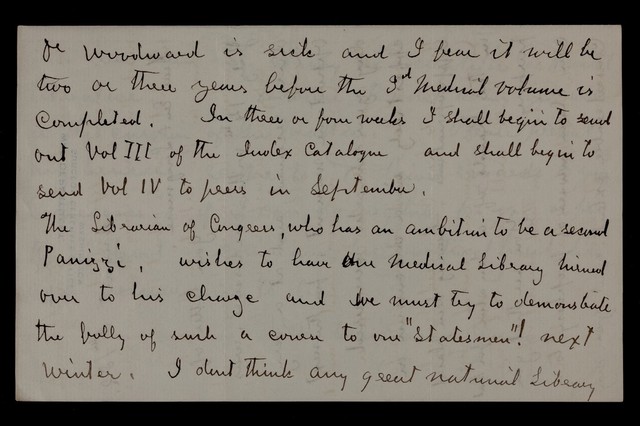 Dr Woodward is sick and I fear it will be
two or three years before the 3rd Medical volume is
Completed. In three or four weeks I shall begin to send
out Vol III of the Index Catalogue and shall begin to
send Vol IV to press in September.
The Librarian of Congress, who has an ambition to be a second
Panizzi, wishes to have the Medical Library turned
over to his charge and we must try to demonstrate
the folly of such a course to our "Statesmen"! next
Winter. I dont think any great national Library